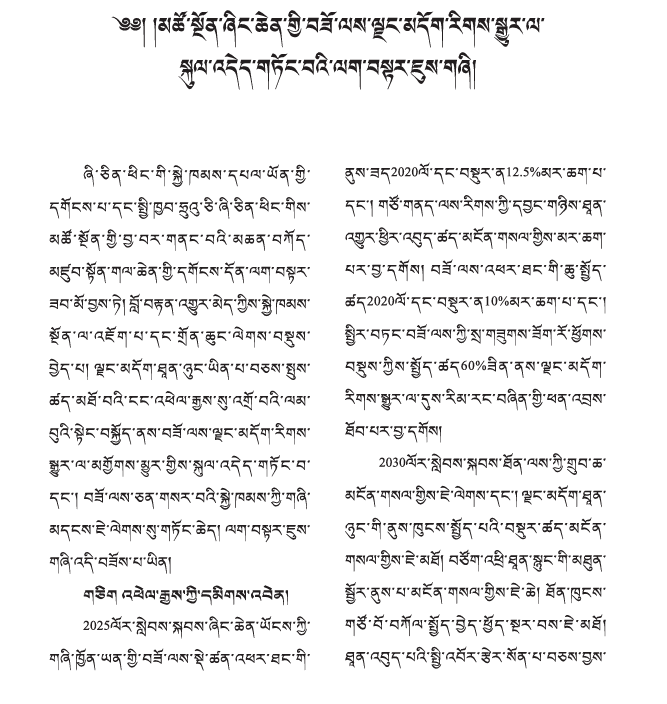 ༄༅། །མཚོ་སྔོན་ཞིང་ཆེན་གྱི་བཟོ་ལས་ལྗང་མདོག་རིགས་སྒྱུར་ལ་
སྐུལ་འདེད་གཏོང་བའི་ལག་བསྟར་ཇུས་གཞི།
ཞི་ཅིན་ཕིང་གི་སྐྱེ་ཁམས་དཔལ་ཡོན་གྱི་
དགོངས་པ་དང་སྤྱི་ཁྱབ་ཧྲུའུ་ཅི་ཞི་ཅིན་ཕིང་གིས་
མཚོ་སྔོན་གྱི་བྱ་བར་གནང་བའི་མཆན་བཀོད་
མཛུབ་སྟོན་གལ་ཆེན་གྱི་དགོངས་དོན་ལག་བསྟར་
ཟབ་མོ་བྱས་ཏེ། བློ་བརྟན་འགྱུར་མེད་ཀྱིས་སྐྱེ་ཁམས་
སྔོན་ལ་འཇོག་པ་དང་གྲོན་ཆུང་ལེགས་བསྡུས་
བྱེད་པ། ལྗང་མདོག་ཐན་ཉུང་ཡིན་པ་བཅས་སྤུས་
ཚད་མཐོ་བའི་ངང་འཕེལ་རྒྱས་སུ་འགྲོ་བའི་ལམ་
བུའི་སྟེང་བསྐྱོད་ནས་བཟོ་ལས་ལྗང་མདོག་རིགས་
སྒྱུར་ལ་མགྱོགས་མྱུར་གྱིས་སྐུལ་འདེད་གཏོང་བ་
དང་། བཟོ་ལས་ཅན་གསར་བའི་སྐྱེ་ཁམས་ཀྱི་གཞི་
མདངས་ཇེ་ལེགས་སུ་གཏོང་ཆེད། ལག་བསྟར་ཇུས་
གཞི་འདི་བཟོས་པ་ཡིན།
གཅིག འཕེལ་རྒྱས་ཀྱི་དམིགས་འབེན།
2025ལོར་སླེབས་སྐབས་ཞིང་ཆེན་ཡོངས་ཀྱི་
གཞི་ཁྱོན་ཡན་གྱི་བཟོ་ལས་སྡེ་ཚན་འཕར་ཐང་གི་
ནུས་ཟད2020ལོ་དང་བསྡུར་ན12.5%མར་ཆག་པ་
དང་། གཙོ་གནད་ལས་རིགས་ཀྱི་དབྱང་གཉིས་ཐན་
འགྱུར་ཕྱིར་འབུད་ཚད་མངོན་གསལ་གྱིས་མར་ཆག་
པར་བྱ་དགོས། བཟོ་ལས་འཕར་ཐང་གི་ཆུ་སྤྱོད་
ཚད2020ལོ་དང་བསྡུར་ན10%མར་ཆག་པ་དང་།
སྤྱིར་བཏང་བཟོ་ལས་ཀྱི་སྲ་གཟུགས་ཟོག་རོ་ཕྱོགས་
བསྡུས་ཀྱིས་སྤྱོད་ཚད60%ཟིན་ནས་ལྗང་མདོག་
རིགས་སྒྱུར་ལ་དུས་རིམ་རང་བཞིན་གྱི་ཕན་འབྲས་
ཐོབ་པར་བྱ་དགོས།
2030ལོར་སླེབས་སྐབས་ཐོན་ལས་ཀྱི་གྲུབ་ཆ་
མངོན་གསལ་གྱིས་ཇེ་ལེགས་དང་། ལྗང་མདོག་ཐན་
ཉུང་གི་ནུས་ཁུངས་སྤྱོད་པའི་བསྡུར་ཚད་མངོན་
གསལ་གྱིས་ཇེ་མཐོ། བཙོག་འཕྲི་ཐན་སྙུང་གི་མཐུན་
སྦྱོར་ནུས་པ་མངོན་གསལ་གྱིས་ཇེ་ཆེ། ཐོན་ཁུངས་
གཙོ་བོ་བཀོལ་སྤྱོད་བྱེད་ཕྱོད་སྔར་བས་ཇེ་མཐོ།
ཐན་འབུད་པའི་སྤྱི་འབོར་རྩེར་སོན་པ་བཅས་བྱས་